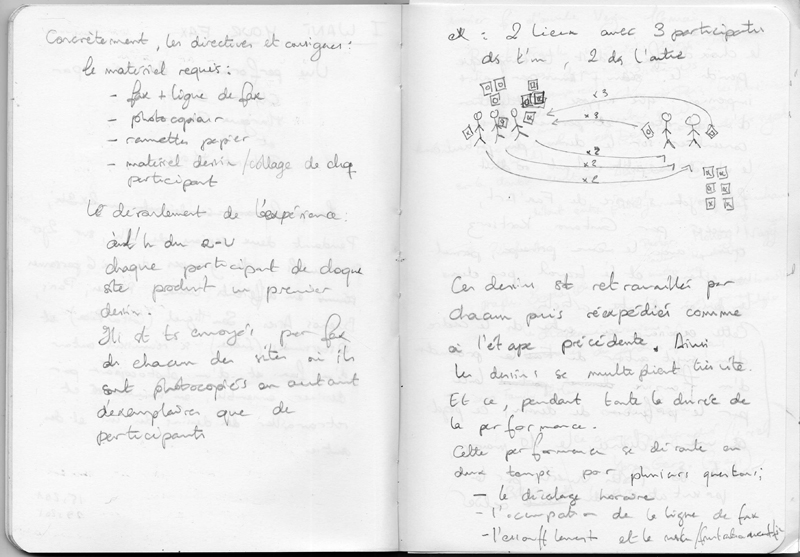 Concrètement, les directives et consignes :
le materiel requis :
- fax + ligne de fax
- photocopieur
- ramettes papier
- materiel dessin / collage de chq
participant
Le déroulement de l'expérience :
à l'h du R-V
chaque participant de chaque
site produit un premier
dessin.
Ils st ts envoyés par fax
ds chacun des sites où ils
sont photocopiés en autant
d'exemplaires que de
participants
ex : 2 lieux avec 3 participants
ds l'un, 2 ds l'autre
x 3
x 3
x 2
x 2
x 2
Ces dessins st retravaillés par
chacun puis réexpédiés comme
à l'étape précédente. Ainsi
les dessins se multiplient très vite.
Et ce, pendant toute la durée de
la performance.
Cette performance se déroule en
deux temps pour plusieurs questions ;
- le décalage horaire
- l'occupation de la ligne de fax
- l'essoufflement et le